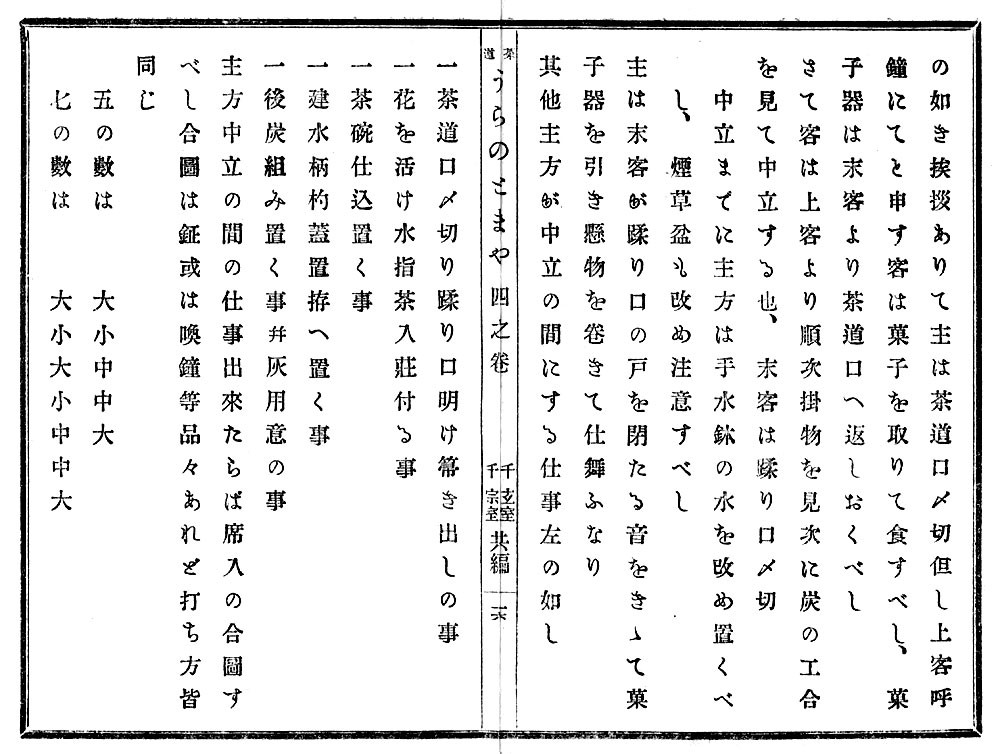 の如き挨拶ありて主は茶道口〆切但し上客呼
鐘にてと申す客は菓子を取りて食すべし、菓
子器は末客より茶道口へ返しおくべし
さて客は上客より順次掛物を見次に炭の工合
を見て中立する也、末客は蹂り口〆切
中立までに主方は手水鉢の水を改め置くべ
し、煙草盆も改め注意すべし
主は末客が蹂り口の戸を閉たる音をきゝて菓
子器を引き懸物を巻きて仕舞ふなり
其他主方が中立の間にする仕事左の如し
茶道 うらのとまや 四之卷 千玄室 千宗室 共編
一茶道口〆切り蹂り口明け箒き出しの事
一花を活け水指茶入莊付る事
一茶碗仕込置く事
一建水柄杓蓋置拵へ置く事
一後炭組み置く事幷灰用意の事
主方中立の間の仕事出來たらば席入の合圖す
べし合圖は鉦或は喚鐘等品々あれど打ち方皆
同じ
五の數は 大小中中大
七の數は 大小大小中中大